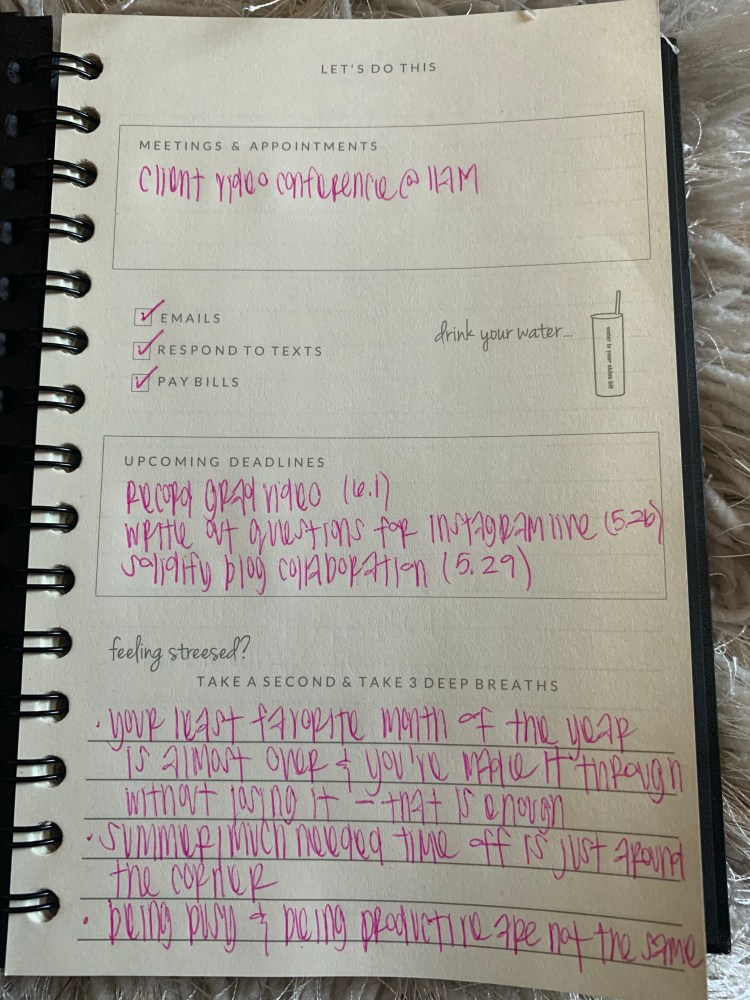 LET'S DO THIS
MEETINGS & APPOINTMENTS
client video conference @ 11AM
EMAILS
RESPOND TO TEXTS
PAY BILLS
drink your water...
water is your skins bff
UPCOMING DEADLINES
record grad video (6.1)
write out questions for instagram live (5.26)
solidify blog collaboration (5.29)
feeling streesed?
TAKE A SECOND & TAKE 3 DEEP BREATHS
• your least favorite month of the year
is almost over & you're made it through
without losing it - that is enough
• summer/much needed time off is just around
the corner
• being busy & being productive are not the same